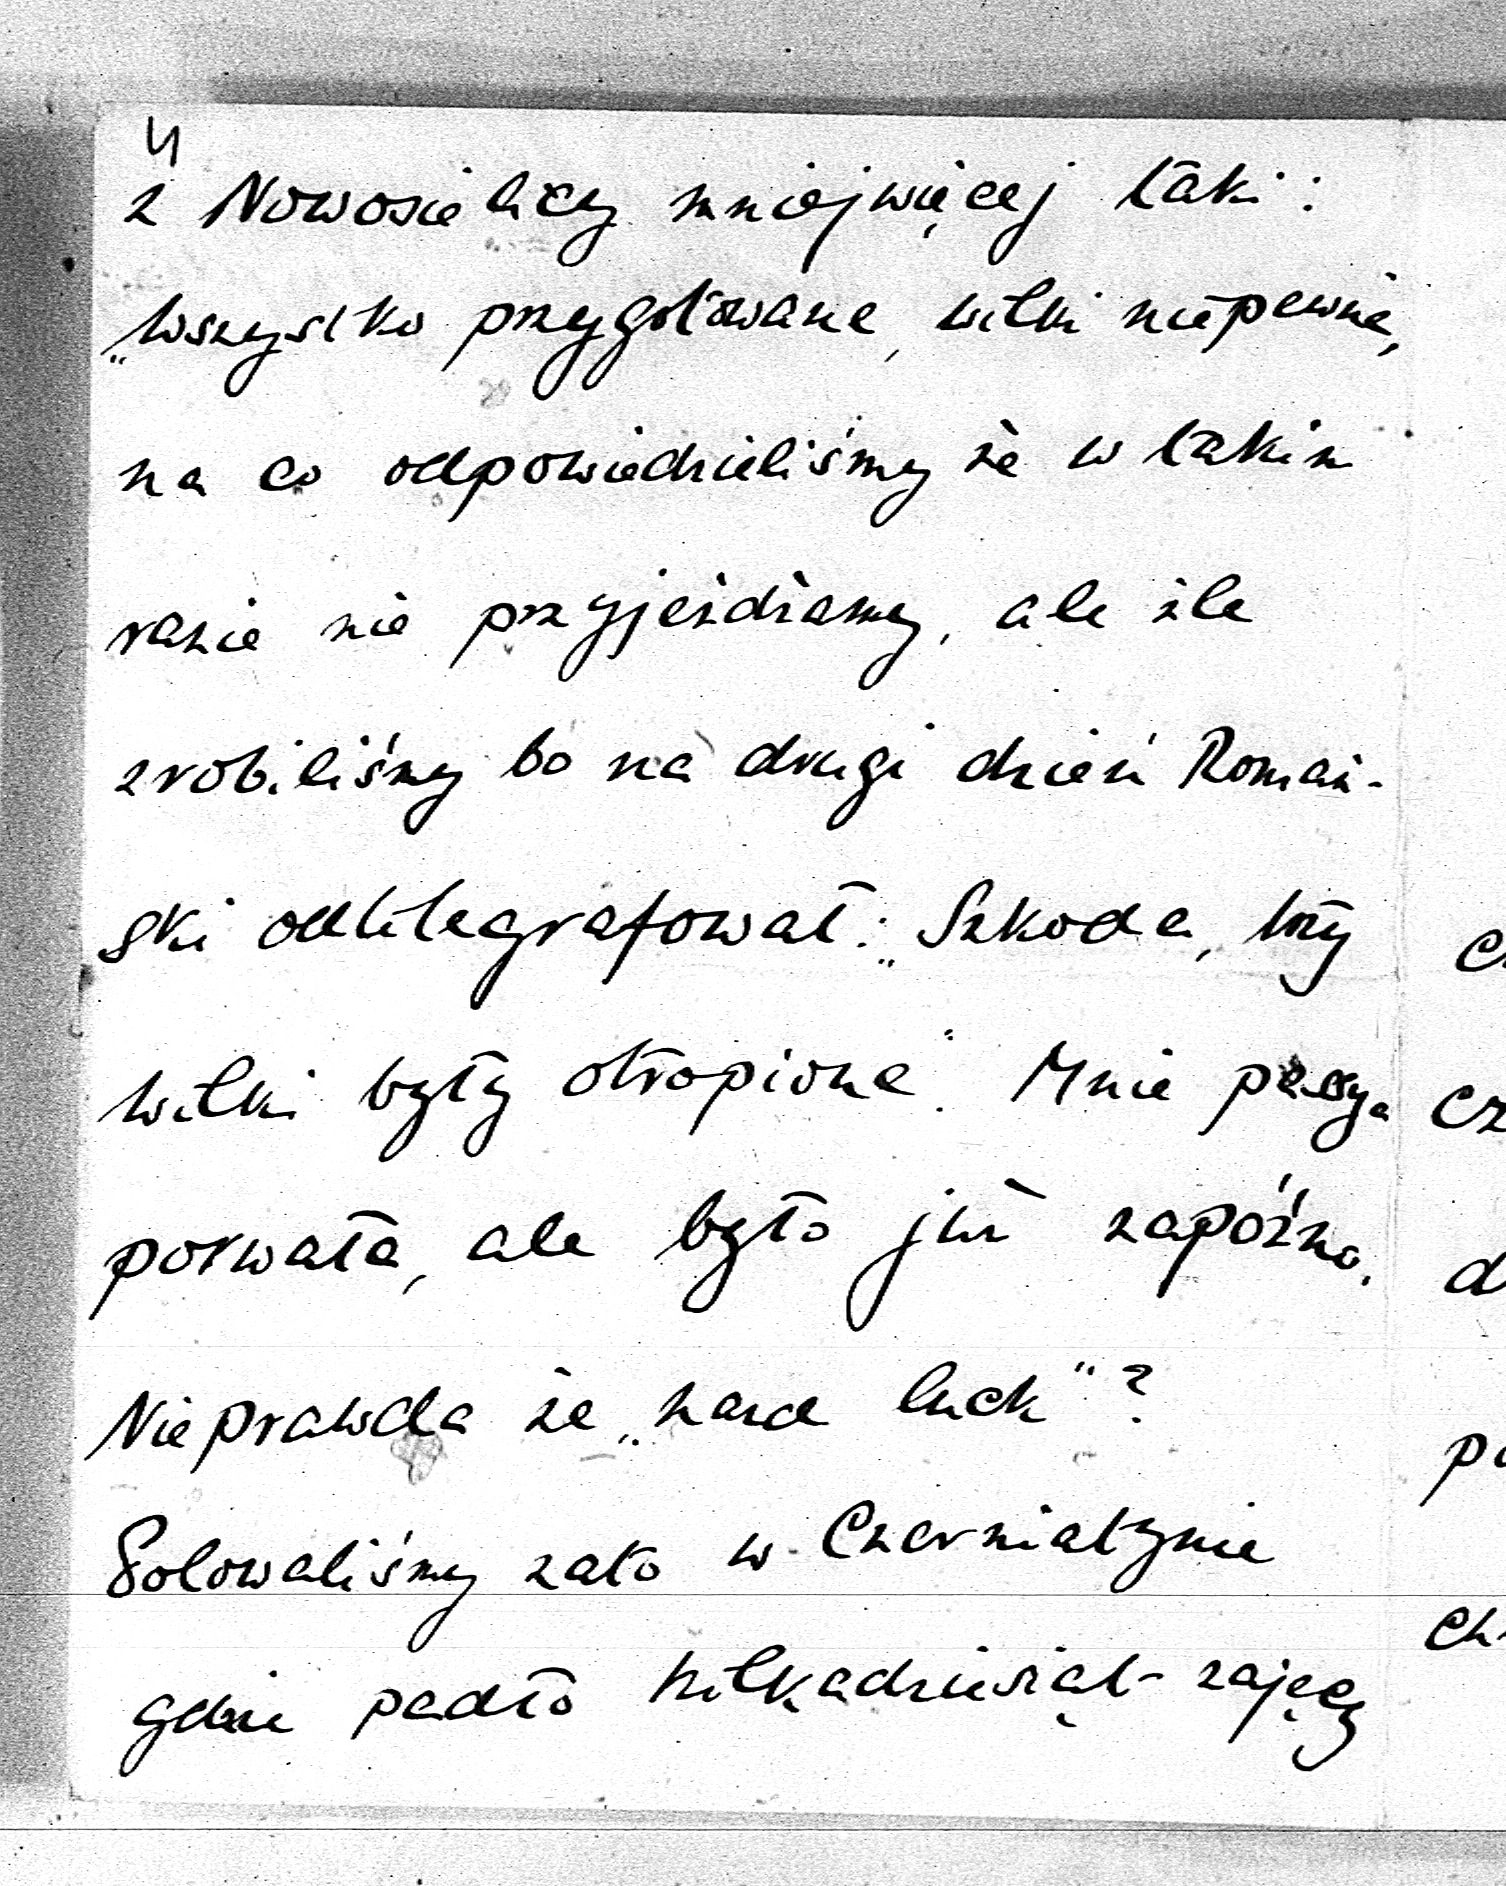 4
z Nowosielicy mniejwięcej taki:
„Wszystko przygotowane, wilki niepewne,
na co odpowiedzieliśmy że w takim
razie nie przyjeżdżamy, ale źle
zrobiliśmy bo na drugi dzień Romań-
ski odtelegrafował: „Szkoda, trzy
wilki były otropione". Mnie pasya
porwała, ale było już zapóźno.
Nieprawda że „hard luck"?
Polowaliśmy zato w Czerniatynie
gdzie padło kilkadziesiąt zajęcy
cz
d